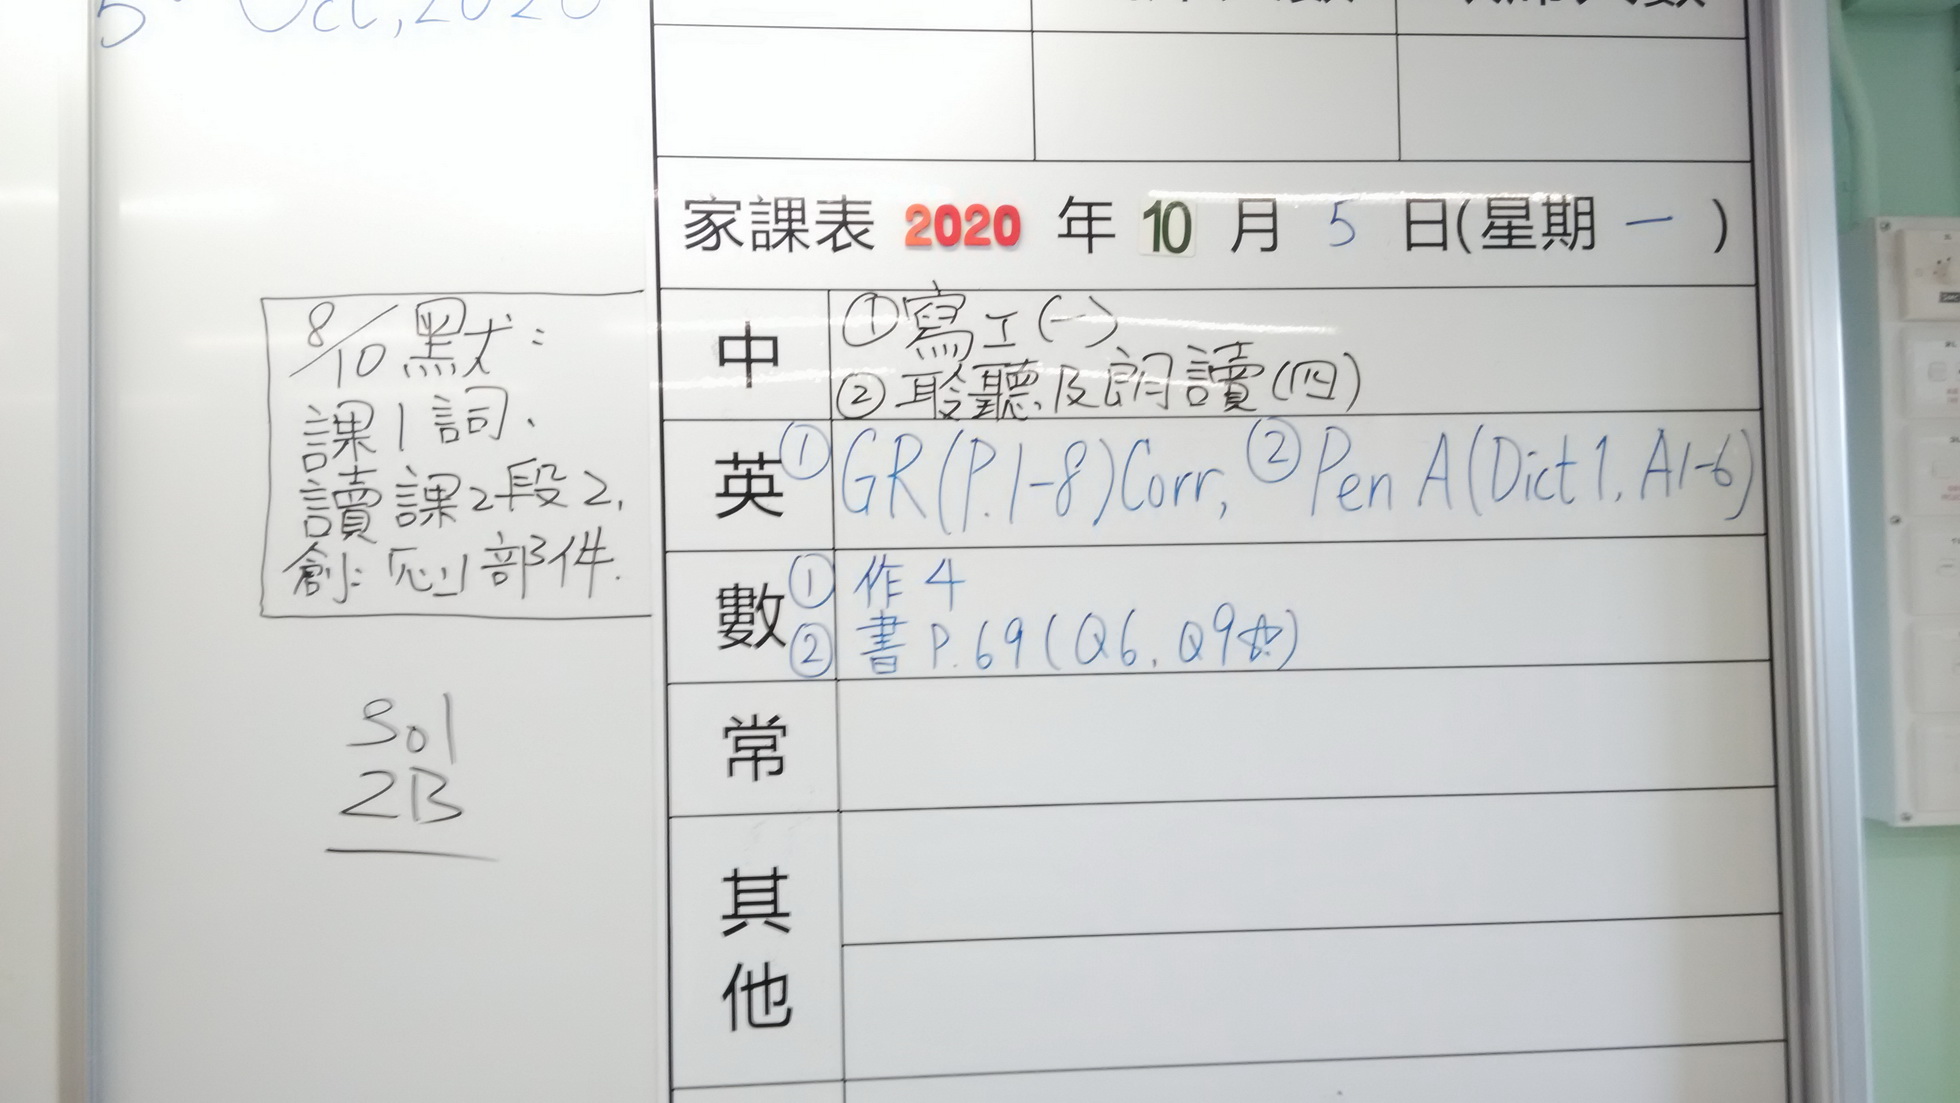 5 Oct, 2020
家課表 2020 年 10 月 5 日(星期 一 )
8/10 默:
課1詞、
讀課2段2,
創:「心」部件.
301
2B
中 ①寫工(一)
②聆聽及朗讀(四)
英 ①GR(P.1-8)Corr, ②Pen A(Dict 1, A1-6)
數 ① 作4
② 書 P.69(Q6, Q9☆)
常
其
他